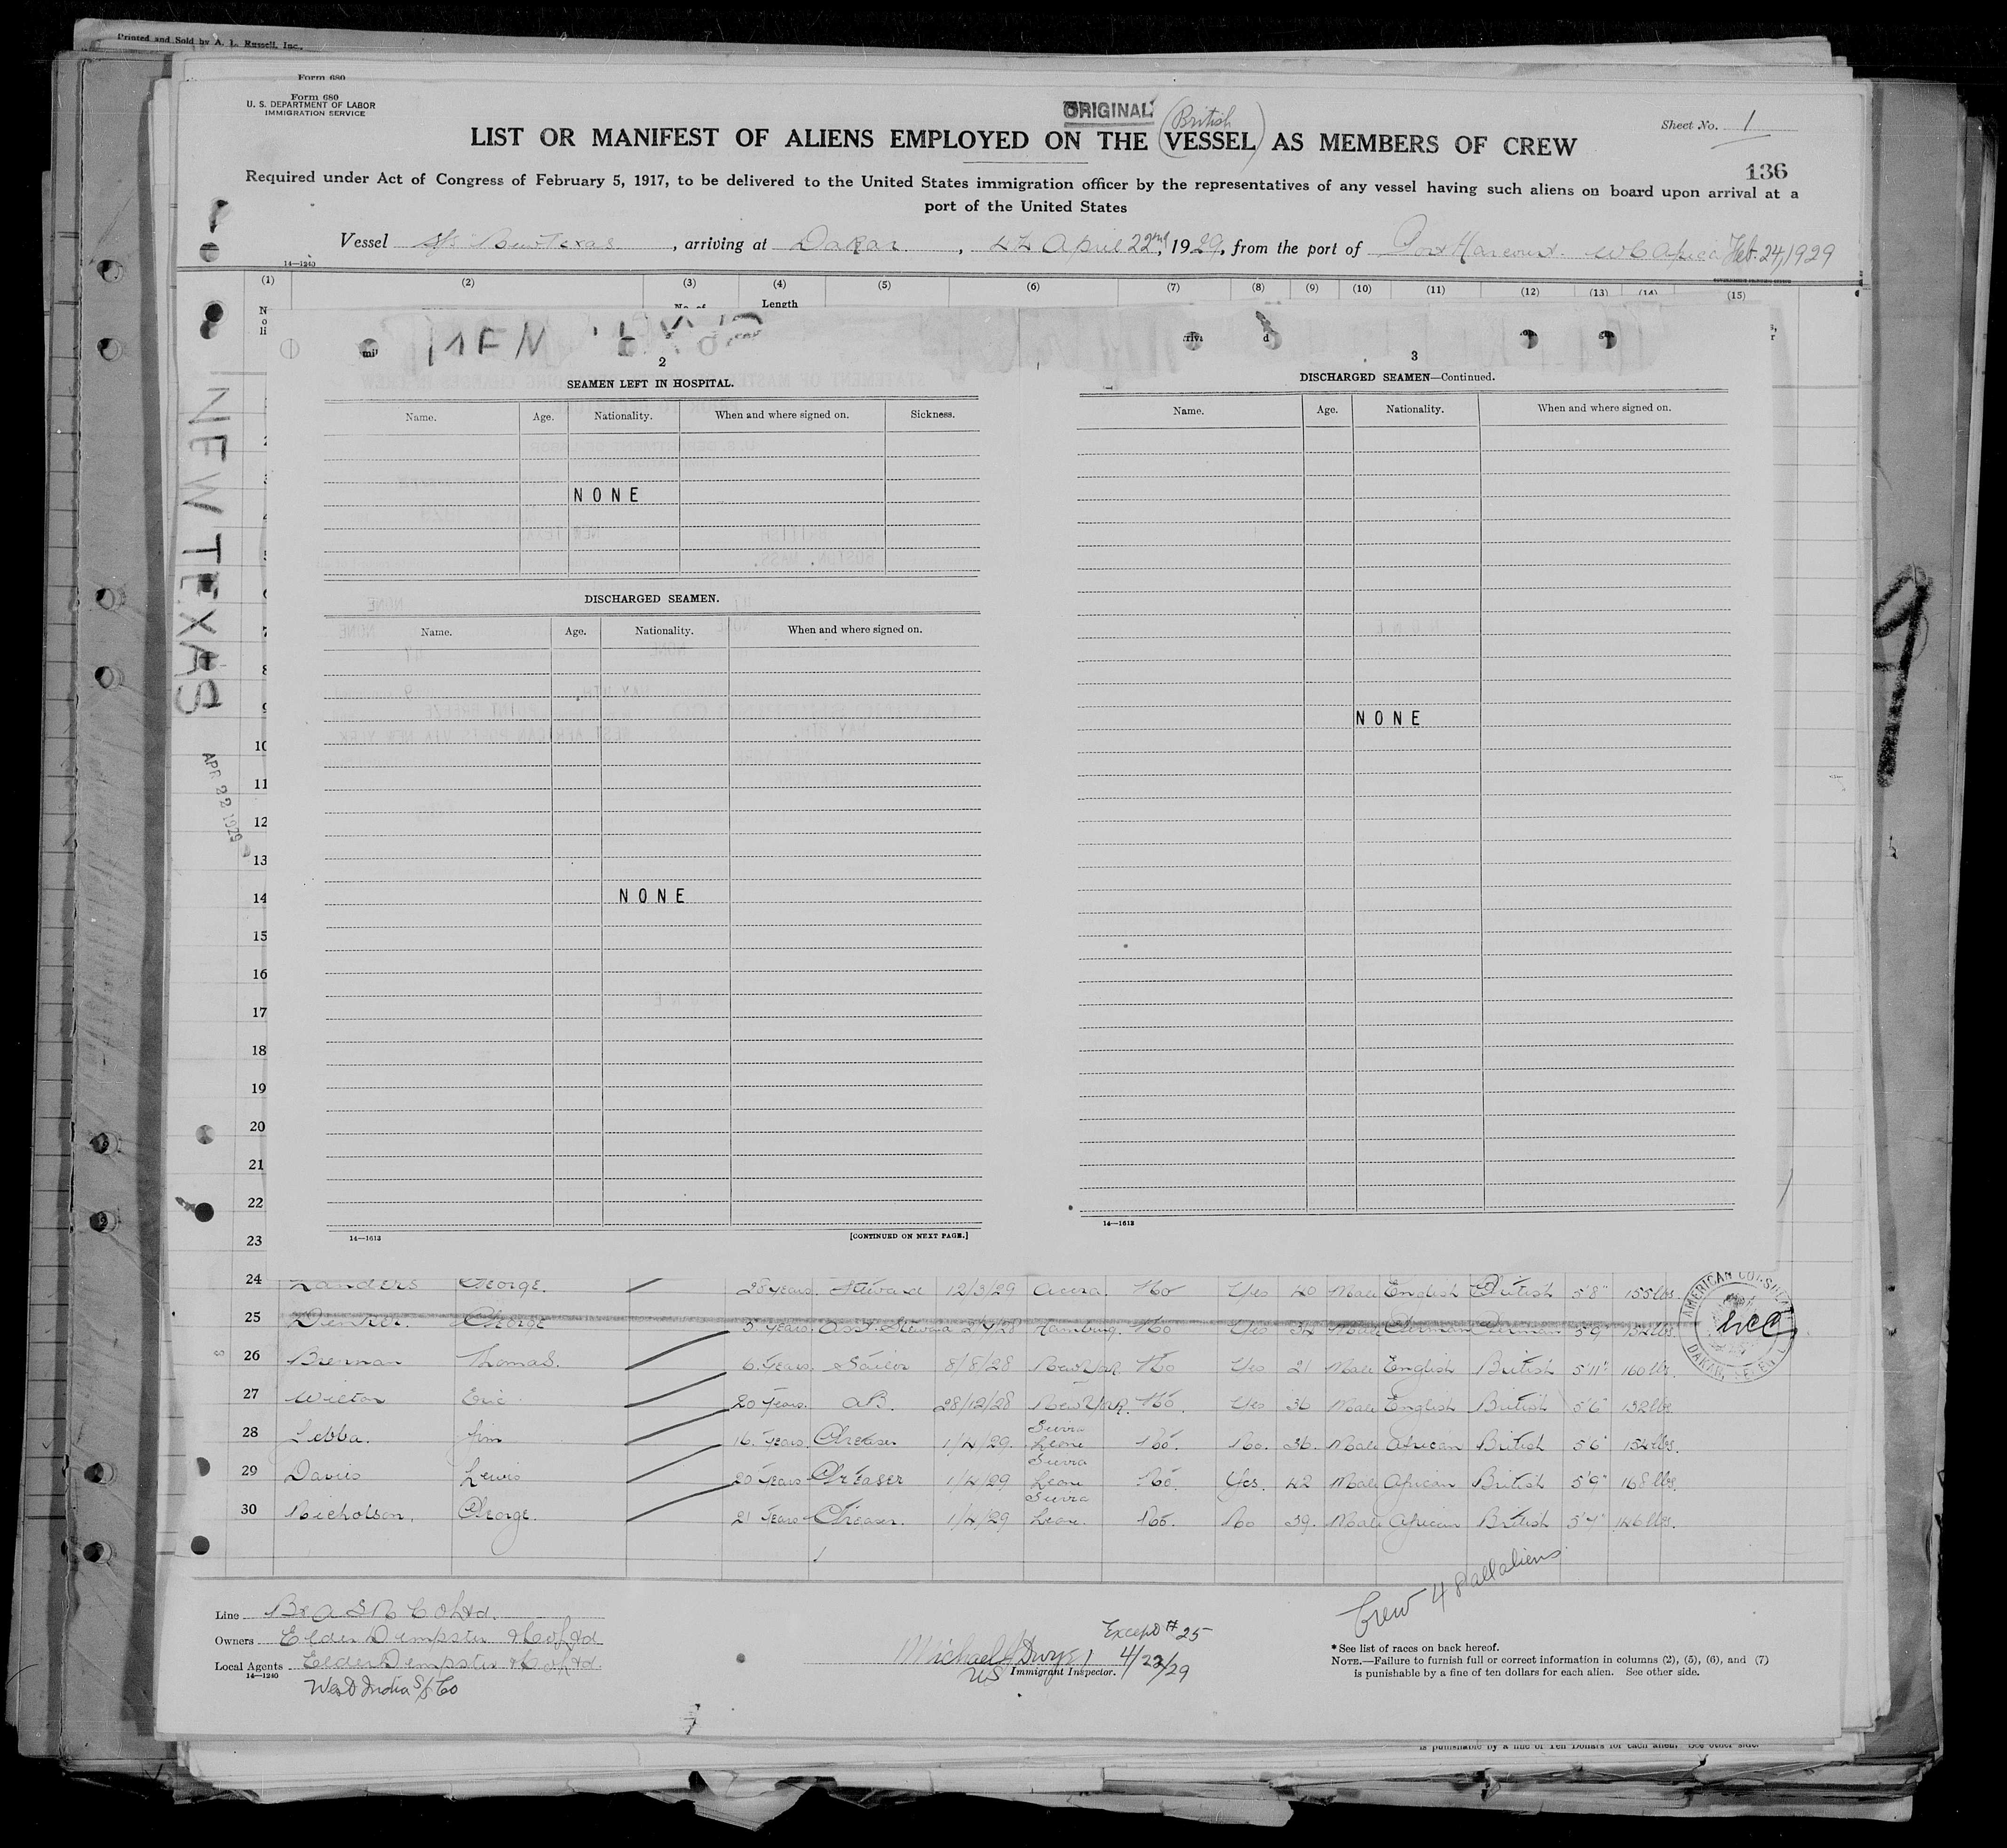 Printed and Sold by A. L. Russell, Inc.
Form 680
Form 680
U. S. DEPARTMENT OF LABOR
IMMIGRATION SERVICE
ORIGINAL
(British)
Sheet No. 1
LIST OR MANIFEST OF ALIENS EMPLOYED ON THE VESSEL AS MEMBERS OF CREW
136
Required under Act of Congress of February 5, 1917, to be delivered to the United States immigration officer by the representatives of any vessel having such aliens on board upon arrival at a
port of the United States
Vessel S/S New Texas, arriving at Dakar, April 22nd, 1929, from the port of Port Harcourt. W C Africa Feb. 24, 1929
14—1240
(1) (2) (3) (4) (5) (6) (7) (8) (9) (10) (11) (12) (13) (14) (15)
No. of Length
NEW TEXAS
APR 22 1929
2
SEAMEN LEFT IN HOSPITAL.
Name. Age. Nationality. When and where signed on. Sickness.
NONE
DISCHARGED SEAMEN.
Name. Age. Nationality. When and where signed on.
NONE
14—1613 [CONTINUED ON NEXT PAGE.]
3
DISCHARGED SEAMEN—Continued.
Name. Age. Nationality. When and where signed on.
NONE
14—1613
8
9
10
11
12
13
14
15
16
17
18
19
20
21
22
23
24 Landers George. 28 years. Steward 12/3/29 Accra. No Yes 40 Male English British 5'8" 155 lbs.
25 George 5 years. Asst. Steward Hamburg. No Yes 32 Male German German 5'9" 132 lbs
26 Brennan Thomas. 6 years. Sailor 8/8/28 New York No Yes 21 Male English British 5'11" 160 lbs.
27 Wilton Eric 20 years. AB. 28/12/28 New York. No. Yes 36 Male English British 5'6" 132 lbs.
28 Lebba. Jim 16 years. Greaser 1/4/29. Sierra Leone No. No. 36. Male African British 5'6" 154 lbs.
29 Davies Lewis 20 years Greaser 1/4/29 Sierra Leone No. Yes. 42 Male African British 5'9" 168 lbs.
30 Nicholson. George. 21 years Greaser. 1/4/29 Sierra Leone. No. No 39. Male African British 5'7" 146 lbs.
AMERICAN CONSULATE
DAKAR, SENEGAL
Crew 48 all aliens
Line B & A S N Co Ltd.
Owners Elder Dempster & Co Ltd
Local Agents Elder Dempster & Co Ltd.
14—1240
West India S/S Co
Except #25
Michael J Dwyer 4/22/29
US Immigrant Inspector.
*See list of races on back hereof.
NOTE.—Failure to furnish full or correct information in columns (2), (5), (6), and (7)
is punishable by a fine of ten dollars for each alien. See other side.
is punishable by a fine of Ten Dollars for each alien. See other side.
9